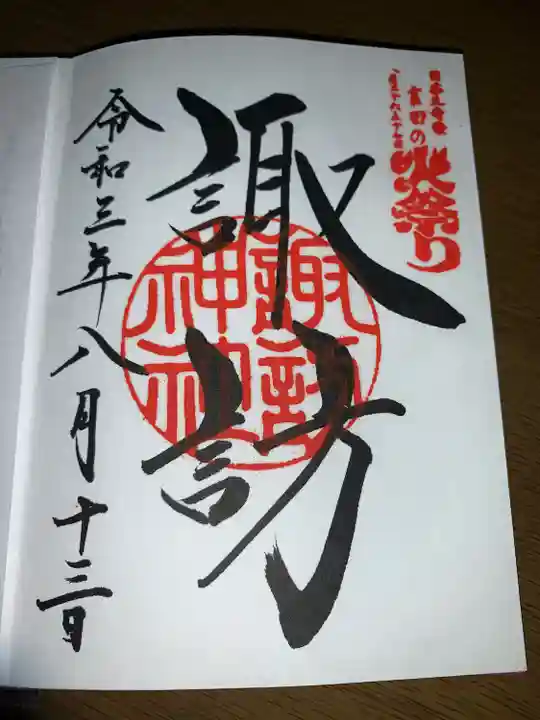 日本三奇祭
吉田の
火祭り
諏訪
諏訪
神社
令和三年八月十三日